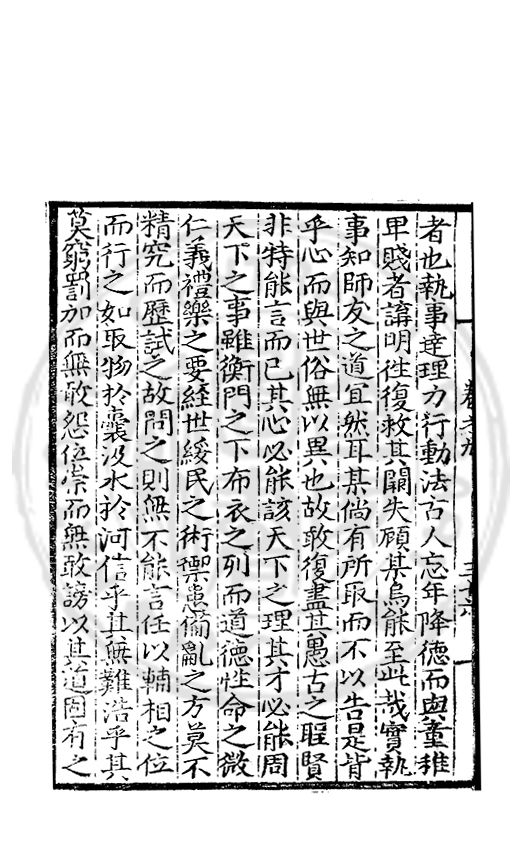 者也執事達理力行動法古人忘年降德而與童稚
卑賤者講明往復救其闕失顧某烏能至此哉實執
事知師友之道宜然耳某倘有所取而不以告是背
乎心而與世俗無以異也故敢復盡其愚古之聖賢
非特能言而已其心必能該天下之理其才必能周
天下之事雖衡門之下布衣之列而道德性命之微
仁義禮樂之要經世綏民之術禦患備亂之方莫不
精究而歷試之故問之則無不能言任以輔相之位
而行之如取物於囊汲水於河信乎其無難浩乎其
莫窮罰加而無敢怨位崇而無敢謗以其道固有之
卷之九
三十六